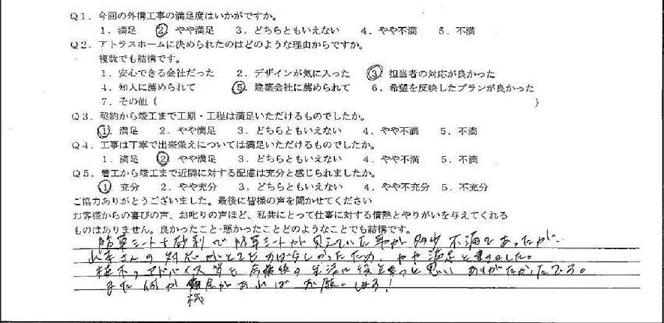 Q1．今回の外構工事の満足度はいかがですか。
1．満足 2．やや満足 3．どちらともいえない 4．やや不満 5．不満
Q2．アトラスホームに決められたのはどのような理由からですか。
複数でも結構です。
1．安心できる会社だった 2．デザインが気に入った 3．担当者の対応が良かった
4．知人に薦められて 5．建築会社に薦められて 6．希望を反映したプランが良かった
7．その他（ ）
Q3．契約から竣工まで工期・工程は満足いただけるものでしたか。
1．満足 2．やや満足 3．どちらともいえない 4．やや不満 5．不満
Q4．工事は丁寧で出来栄えについては満足いただけるものでしたか。
1．満足 2．やや満足 3．どちらともいえない 4．やや不満 5．不満
Q5．着工から竣工まで近隣に対する配慮は充分と感じられましたか。
1．充分 2．やや充分 3．どちらともいえない 4．やや不充分 5．不満
ご協力ありがとうございました。最後に皆様の声を聞かせてください
お客様からの喜びの声、お叱りの声ほど、私共にとって仕事に対する情熱とやりがいを与えてくれる
ものはありません。良かったこと・悪かったことどのようなことでも結構です。
防草シートを砂利で防草シートが見えていた事が多少不満であったが、
さんの対応がとてもすばらしかったため、やや満足と書きました。
植木のアドバイス等も今後の生活に役立つと思いありがたかったです。
また何か機会があればお願いします！